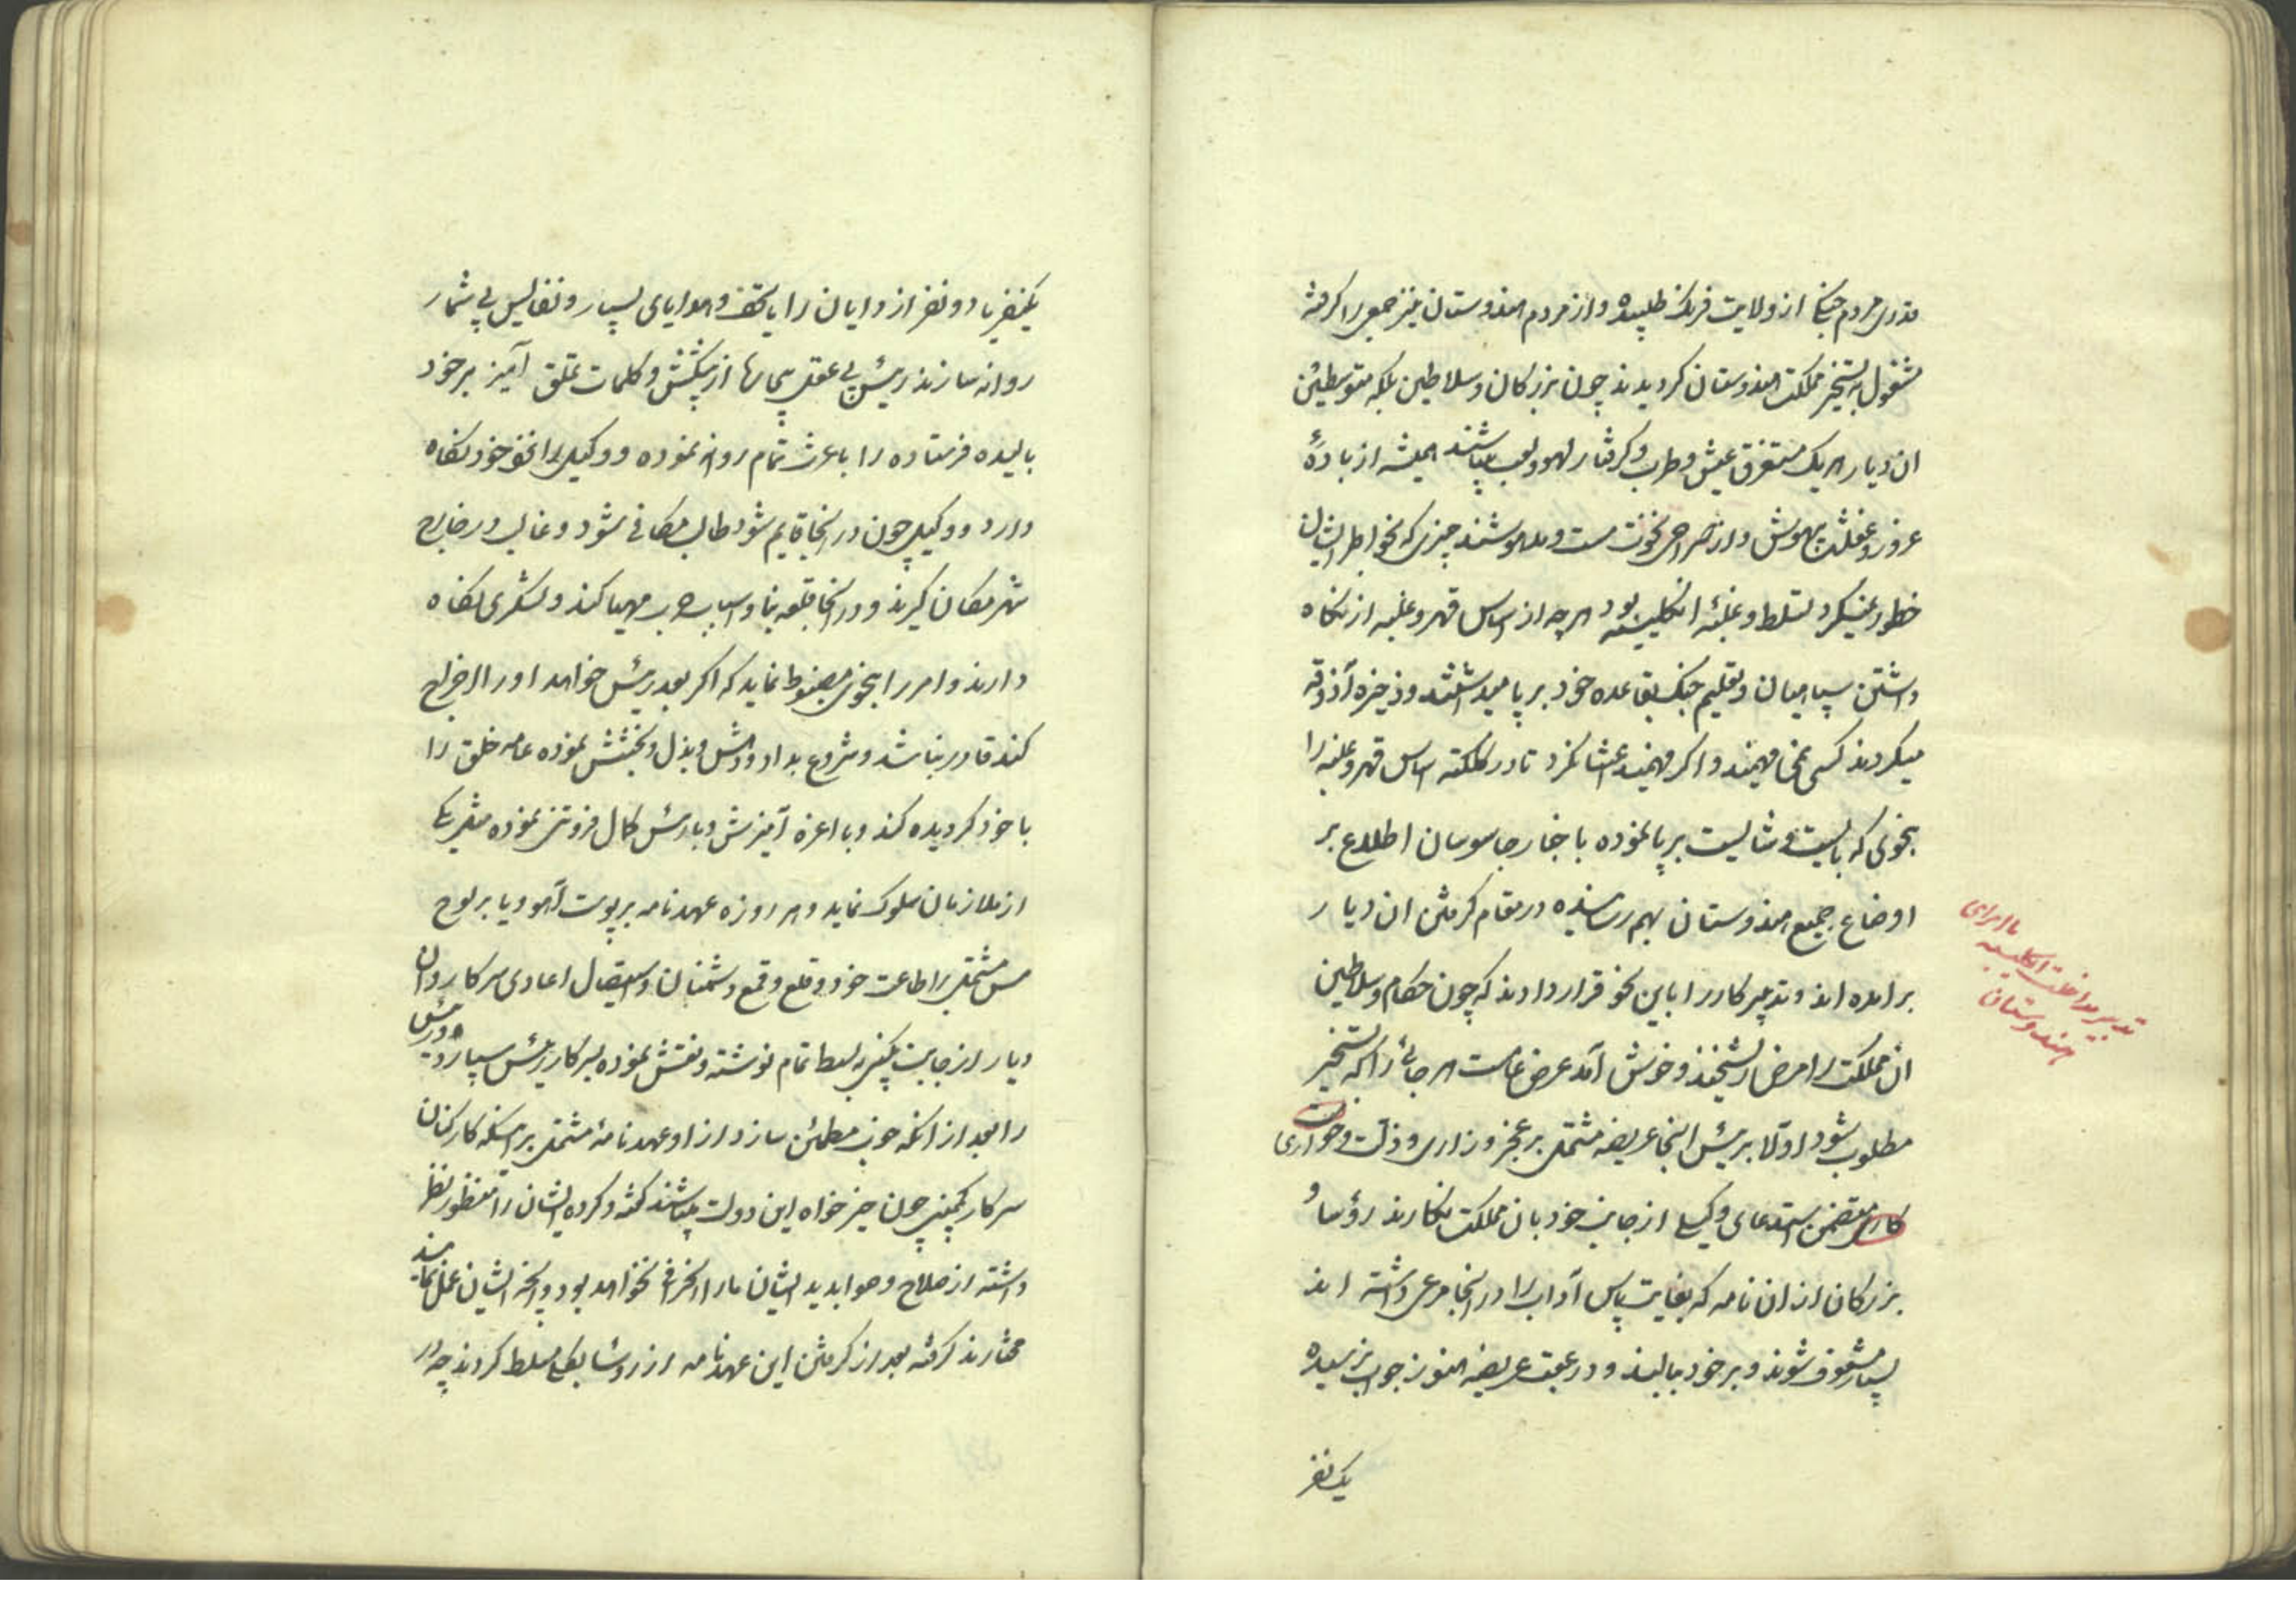 قدری مردم جنگی از ولایت فرنک طلبیده و از مردم هندوستان نیز جمعی را کرفته
مشغول به تسخیر مملکت هندوستان کردیدند چون بزرکان و سلاطین بلکه متوسطین
ان دیار هر یک مستغرق عیش و طرب و کرفتار لهو و لعب میباشند همیشه از بادهٔ
غرور و غفلت بیهوش و از صراحی نخوت مست و مدهوشند چیزی که بخواطر ایشان
خطور نمیکرد تسلط و غلبهٔ انکلیسیه بود هر چه از اساس قهر و غلبه از نکاه
داشتن سپاهیان و تعلیم جنک بقاعده خود بر پا میداشتند و ذخیره آذوقه
میکردند کسی نمی فهمید و اکر فهمید اعتنا نکرد تا در کلکته اساس قهر و غلبه را
بنحوی که بایست و شایست بر پا نموده با خبار جاسوسان اطلاع بر
اوضاع جمیع هندوستان بهم رسانیده در مقام کرفتن ان دیار
بر امده اند و تدبیر کار را باین نحو قرار دادند که چون حکام و سلاطین
ان مملکت را مرض ریشخند و خوش آمد عرض عامست هر جائی را که تسخیر
مطلوب شود اولا برئیس اینجا عریضه مشتمل بر عجز و زاری و ذلت و خواری
کاری متضمن استدعای وکیلی از جانب خود بان مملکت نکارند رؤسا و
بزرکان از ان نامه که بغایت پاس آداب را در انجا مرعی داشته اند
بسیار مشعوف شوند و بر خود ببالند و در عقب عریضه هنوز جواب نرسیده
یک نفر
با امرای
تدبیر مداخلت انکلیسیه
هندوستان
یکنفر یا دو نفر از دایان را با تحف و هدایای بسیار و نفایس بی شمار
روانه سازند رئیس بی عقل بیچاره از پیشکش و کلمات تملق آمیز بر خود
بالیده فرستاده را با عزت تمام روانه نموده و وکیل را نزد خود نکاه
دارد و وکیل چون در انجا قایم شود طالب مکانی شود و غالب در خارج
شهر مکان کیرند و در انجا قلعه بنا و اسباب حرب مهیا کند و لشکری نکاه
دارند و امر را بنحوی مضبوط نماید که اکر بعد رئیس خواهد او را اخراج
کند قادر نباشد و شروع بداد و دهش و بذل و بخشش نموده عامه خلق را
با خود کرویده کند و با اعزه آمیزش و با رئیس کمال فروتنی نموده مثل یکی
از ملازمان سلوک نماید و هر روزه عهد نامه بر پوست آهو و یا بر لوح
مس مشتمل بر اطاعت خود و قلع و قمع دشمنان و استیصال اعادی سرکار و ان
دیار از جانب کمپنی بخط تمام نوشته و نقش نموده بسرکار رئیس سپارد و رئیس
را بعد از انکه خوب مطمئن سازد از او عهد نامهٔ مشتمل بر اینکه کارکنان
سرکار کمپنی چون خیر خواه این دولت میباشند کفته و کرده ایشان را منظور نظر
داشته از صلاح و صوابدید ایشان ما را انحراف نخواهد بود و انچه ایشان عمل نمایند
مختارند کرفته بعد از کرفتن این عهد نامه ارز رؤسا بکلی مسلط کردند چه در